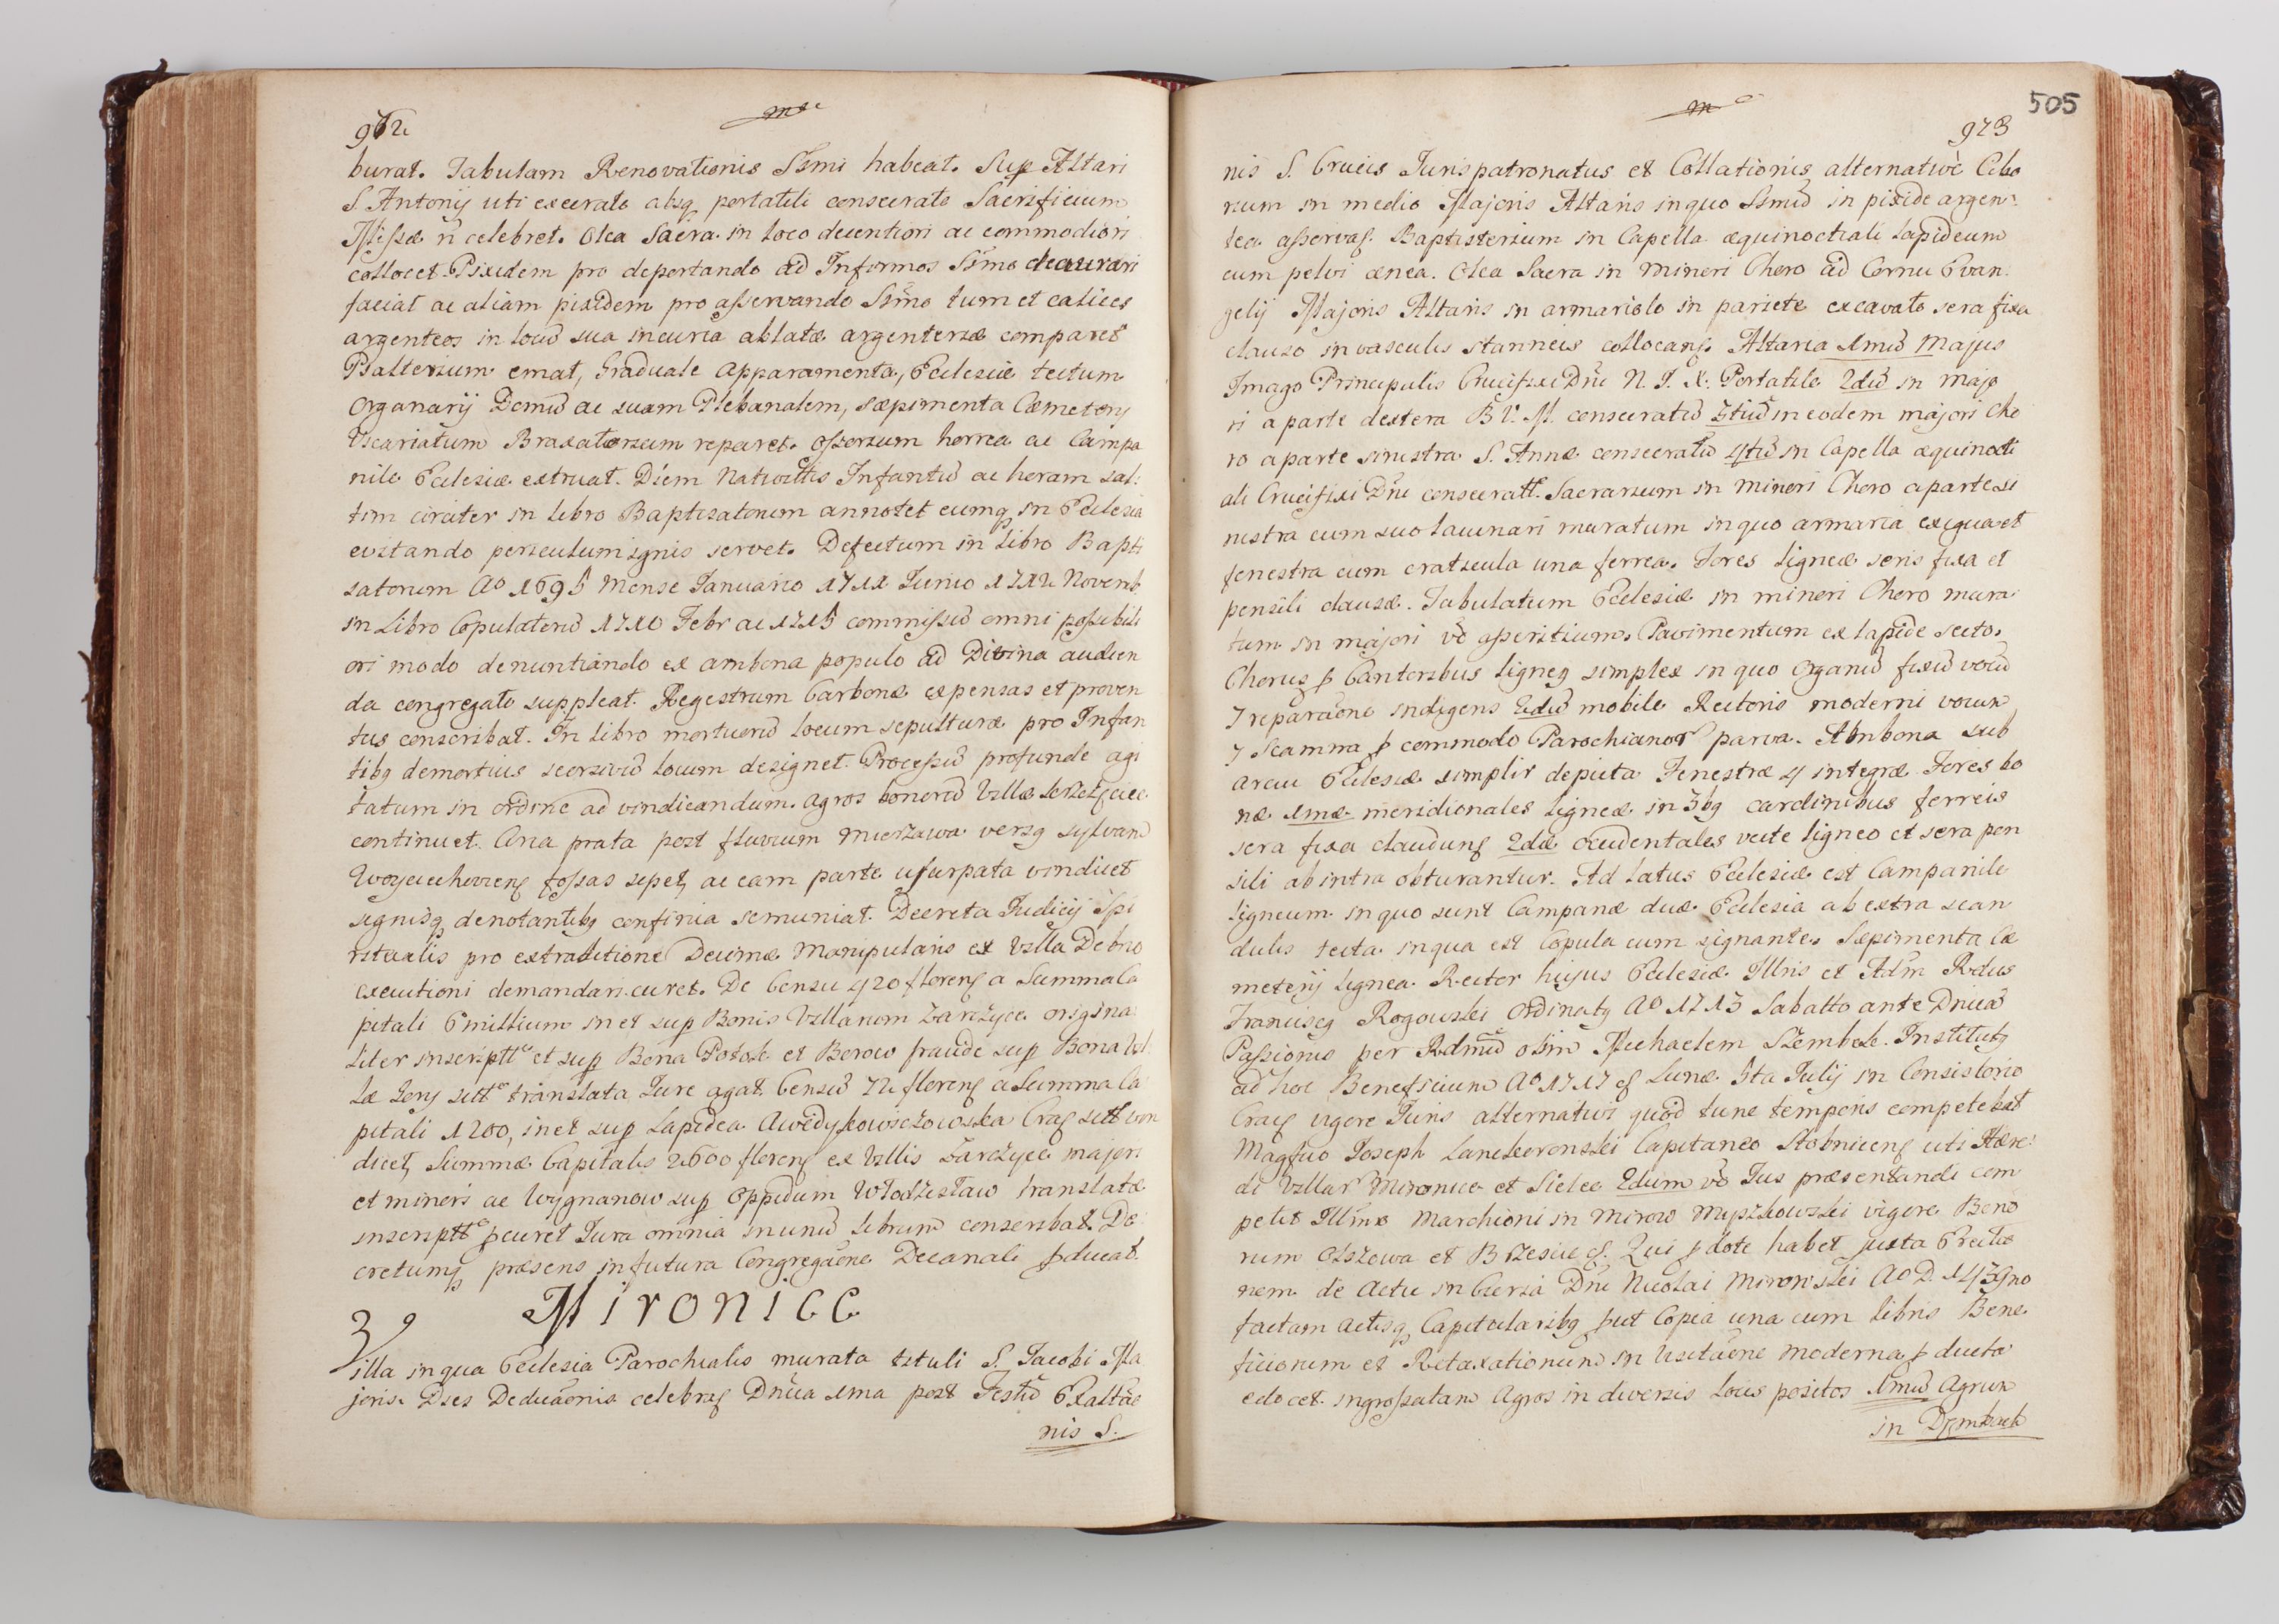 972
burat. Tabulam Renovationis SSmi habeat. Sup Altari
S. Antonij uti execrato absq portatili consecrato Sacrificium
Missæ ñ celebret. Olea Sacra in loco decentiori ac commodiori
collocet. Pixidem pro deportando ad Infirmos SSmo deaurari
faciat ac aliam pixidem pro asservando SSmo tum et calices
argenteos in locũ sua incuria ablatæ argenteriæ comparet
Psalterium emat, Graduale Apparamenta, Ecclesiæ tectum
Organarij Domũ ac suam Plebanalem, sæpimenta Cæmeterij
Vicariatum Braxatorium reparet. Ossorium horrea ac Campa
nile Ecclesiæ extruat. Diem Nativittis Infantũ ac horam sal:
tim circiter in libro Baptisatorum annotet eumq in Ecclesia
evitando periculum ignis servet. Defectum in Libro Bapti
satorum Ao 1695 Mense Januario 1711 Junio 1712 Novemb.
in Libro Copulatorũ 1710 Febr ac 1715 commissũ omni possibili
ori modo denuntiando ex ambona populo ad Divina audien
da congregato suppleat. Regestrum Carbonæ expensas et proven
tus conscribat. In libro mortuorũ locum sepulturæ pro Infan
tibq demortuis seorsivũ locum designet. Processũ profunde agi
tatum in ordine ad vindicandum agros bonorũ Villæ
continuet. Circa prata post fluvium Mierzawa versq sylvam
fossas sepet, ac eam parte usurpata vindicet
signisq denotantibq confinia semuniat. Decreta Judicij Spi
ritualis pro extraditione Decimæ Manipularis ex Villa Debno
executioni demandari curet. De Censu 420 floreng a Summa Ca
pitali 6 millium in et sup Bonis Villarum Zarczyce origina
liter inscriptt et sup Bona Potok et Borow fraude sup Bona Vil
translata Jure agat. Censũ 72 floreng a Summa Ca
pitali 1200, in et sup Lapidea
dicet, Summæ Capitalis 2600 floreng ex Villis Zarczyce majori
et minori ac Wygnanow sup Oppidum Włodzisław translatæ
inscriptt pcuret Jura omnia in unũ librum conscribat. De
cretumq præsens in futura Congregãone Decanali pducat.
Mironice
Villa in qua Ecclesia Parochialis murata tituli S. Jacobi Ma
joris. Dies Dedicãonis celebrag Dnica 1ma post Festũ Exaltão
nis S.
505
973
nis S. Crucis Jurispatronatus et Collationis alternativè Cibo
rium in medio Majoris Altaris in quo SSmũ in pixide argen:
tea asservag. Baptisterium in Capella æquinoctiali lapideum
cum pelvi ænea. Olea Sacra in minori Choro ad Cornu Evan:
gelij Majoris Altaris in armariolo in pariete excavato sera fixa
clauso in vasculis stanneis collocang. Altaria 1mũ Majus
Imago Principalis Crucifixi Dni N. J. X. Portatile 2dũ in majo
ri a parte dextera B.V.M. consecratũ 3tiũ in eodem majori Cho
ro a parte sinistra S. Annæ consecratũ 4tũ in Capella æquinocti
ali Crucifixi Dni consecratt. Sacrarium in minori Choro a parte si
nistra cum suo lacunari muratum in quo armaria exigua et
fenestra cum craticula una ferrea. Fores ligneæ seris fixa et
pensili clausæ. Tabulatum Ecclesiæ in minori Choro mura
tum in majori vo asseritium. Pavimentum ex lapide secto.
Chorus p Cantoribus ligneq simplex in quo Organũ fixũ vocũ
7 reparãone indigens 2dũ mobile Rectoris moderni vocum
7 Scamna p commodo Parochianor parva. Ambona sub
arcu Ecclesiæ simplir depicta Fenestræ 4 integræ Fores bo
næ 1mæ meridionales ligneæ in 3bq cardinibus ferreis
sera fixa claudung 2dæ occidentales vecte ligneo et sera pen
sili ab intra obturantur. Ad latus Ecclesiæ est Campanile
ligneum in quo sunt Campanæ duæ Ecclesia ab extra scan
dulis tecta in qua est Copula cum signante. Sæpimenta Cæ
meterij lignea. Rector hujus Ecclesiæ Illris et Adm Rdus
Franciscq Rogowski Ordinatq Ao 1713 Sabatto ante Dnicã
Passionis per Rdmũ olim Michaelem Szembek. Institutq
ad hoc Beneficium Ao 1717 Lunæ 5ta Julij in Consistorio
Crac vigore Juris alternativi quod tunc temporis competebat
Magfico Joseph Lanckoronski Capitaneo Stobniceng uti Hære:
di Villar Mironice et Sielce 2dum vo Jus præsentandi com
petit Illmo Marchioni in Mirow Myszkowski vigore Bono
rum Olszowa et Brzescie Qui p dote habet juxta Erectio
nem de Actu in Curia Dni Nicolai Mirowski Ao D. 143gno
factam Actisq Capitularibq put Copia una cum libris Bene
ficiorum et Retaxationum in Visitãone moderna p ducta
edocet ingrossatam Agros in diversis locis positos 1mũ Agrum
in Dembrack